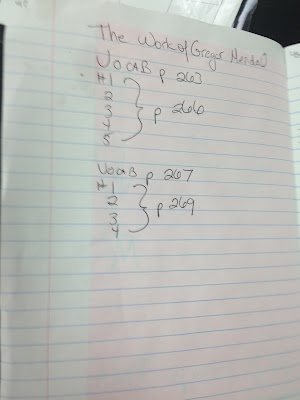 The Work of Gregor Mendel
VOCAB p 263
#1
2
3 } p 266
4
5
VOCAB p 267
#1
2 } p 269
3
4